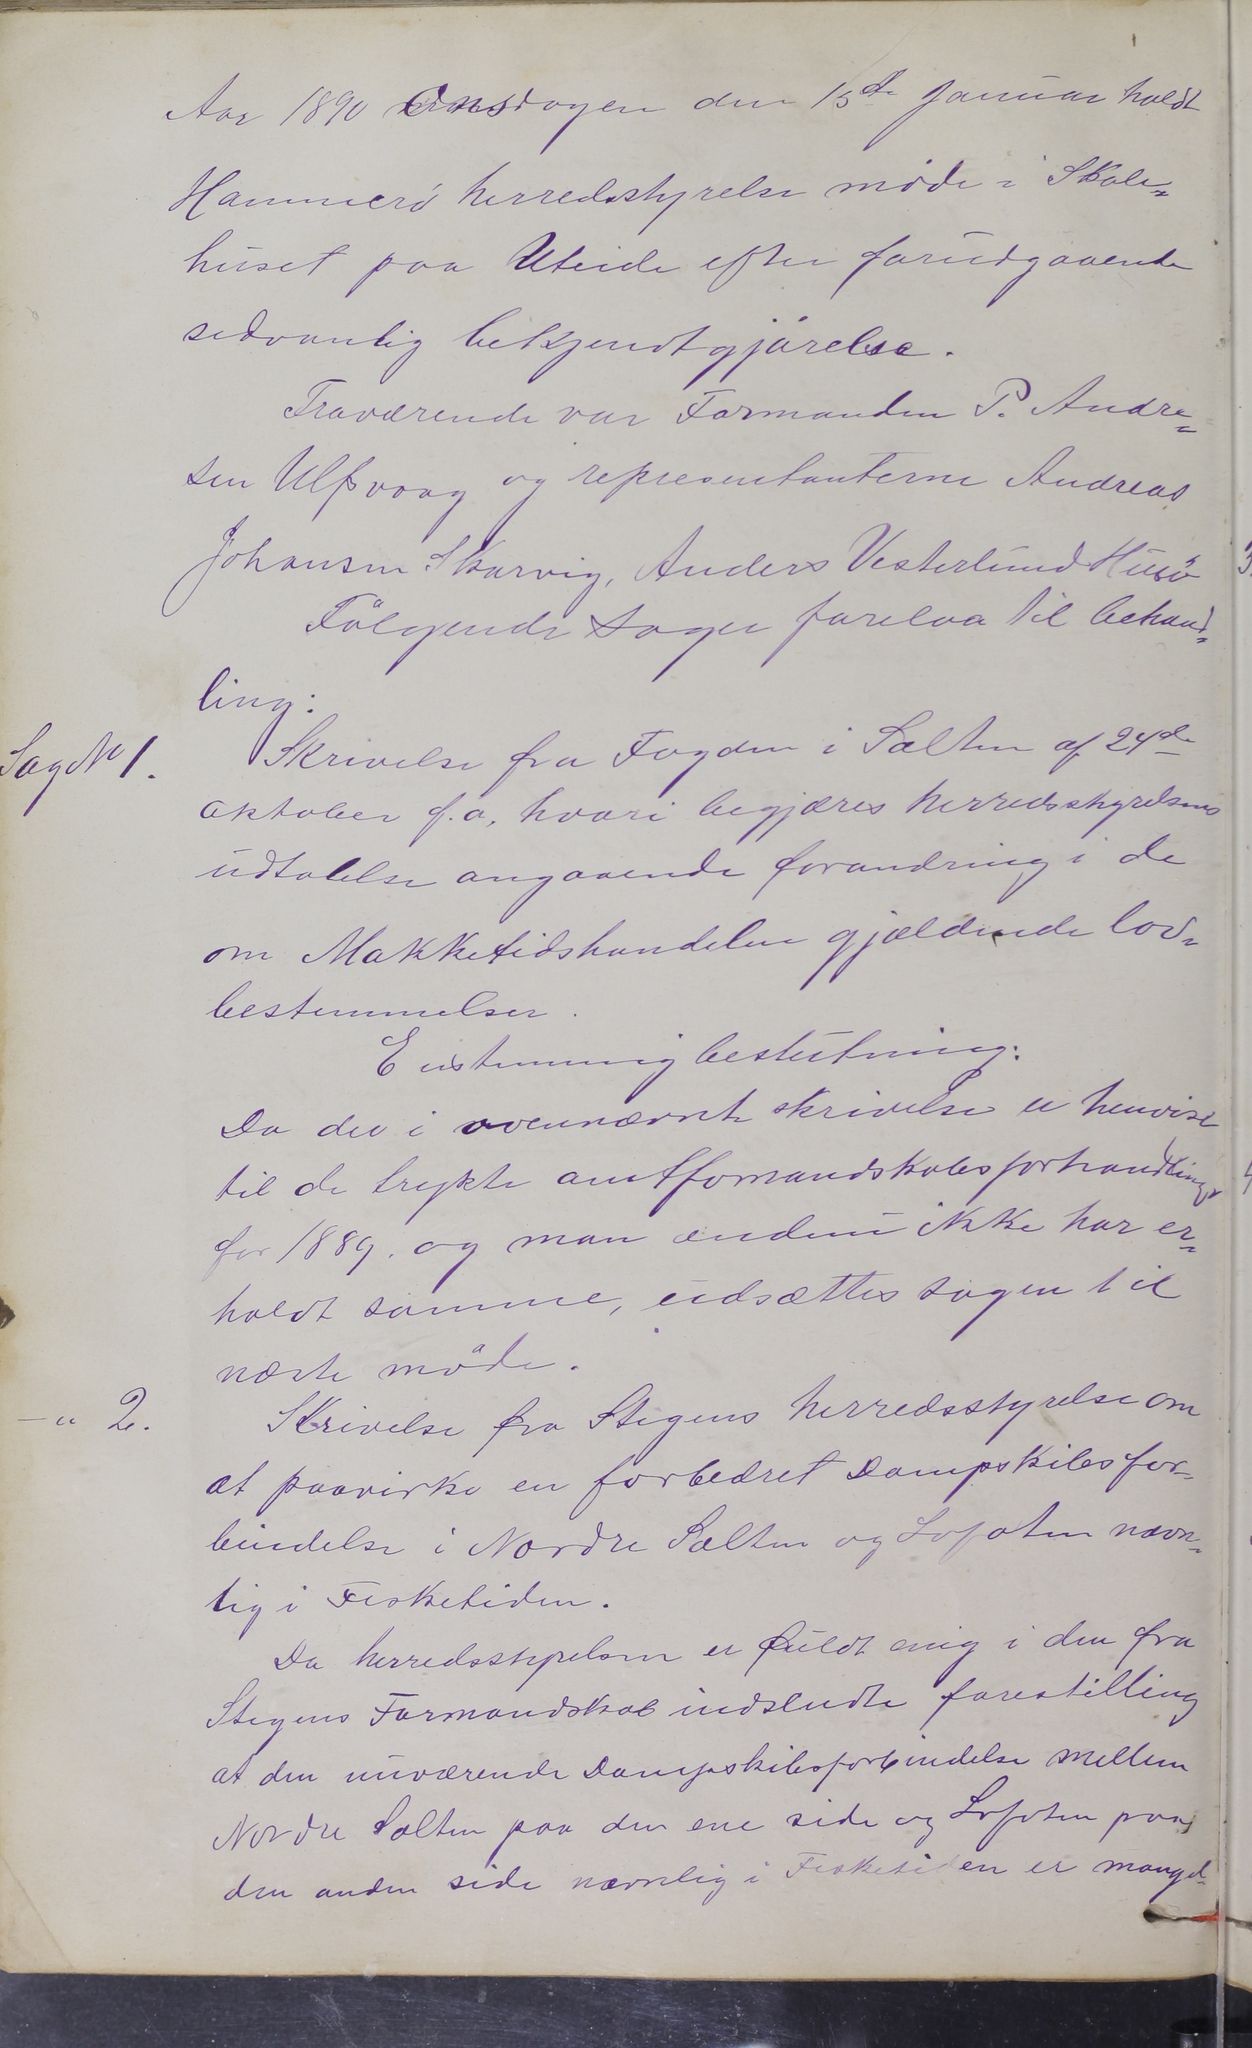 Aar 1890 Onsdagen den 15de Januar holdt
Hammerö herredsstyrelse möde i Skole-
huset paa Uteide efter forudgaaende
sedvanlig bekjendtgjörelse.
Fraværende var Formanden P. Andre-
sen Ulfsvaag og representanterne Andreas
Johansen Skarvig, Anders Vesterlund Husö
Fölgende sager forelaa til behand-
ling:
Sag No 1. Skrivelse fra Fogden i Salten af 24de
oktober f.a, hvori begjæres herredsstyrelsens
udtalelse angaaende forandring i de
om Makketidshandelen gjældende lov-
bestemmelser.
Enstemmig beslutning:
Da der i ovennævnte skrivelse er henvist
til de trykte amtformandskabsforhandlinger
for 1889. og man endnu ikke har er-
holdt samme, udsættes sagen til
næste möde.
-"- 2. Skrivelse fra Stegens herredsstyrelse om
at paavirke en forbedret Dampskibsfor-
bindelse i Nordre Salten og Lofoten navn-
lig i Fisketiden.
Da herredsstyrelsen er fuldt enig i den fra
Stegens Formandskab indsendte forestilling
at den nuværende Dampskibsforbindelse mellem
Nordre Salten paa den ene side og Lofoten paa
den anden side navnlig i Fisketiden er mangel-